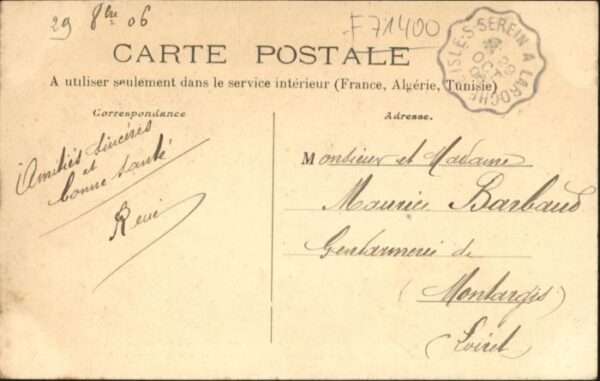 29 8bre 06
F71400
L'ISLE-S-SEREIN A LAROCHE
29
OCT
06
CARTE POSTALE
A utiliser seulement dans le service intérieur (France, Algérie, Tunisie)
Correspondance
Adresse.
Amitiés sincères
et
bonne santé
René
Monsieur et Madame
Maurice Barbaud
Gendarmerie de
(Montargis)
Loiret